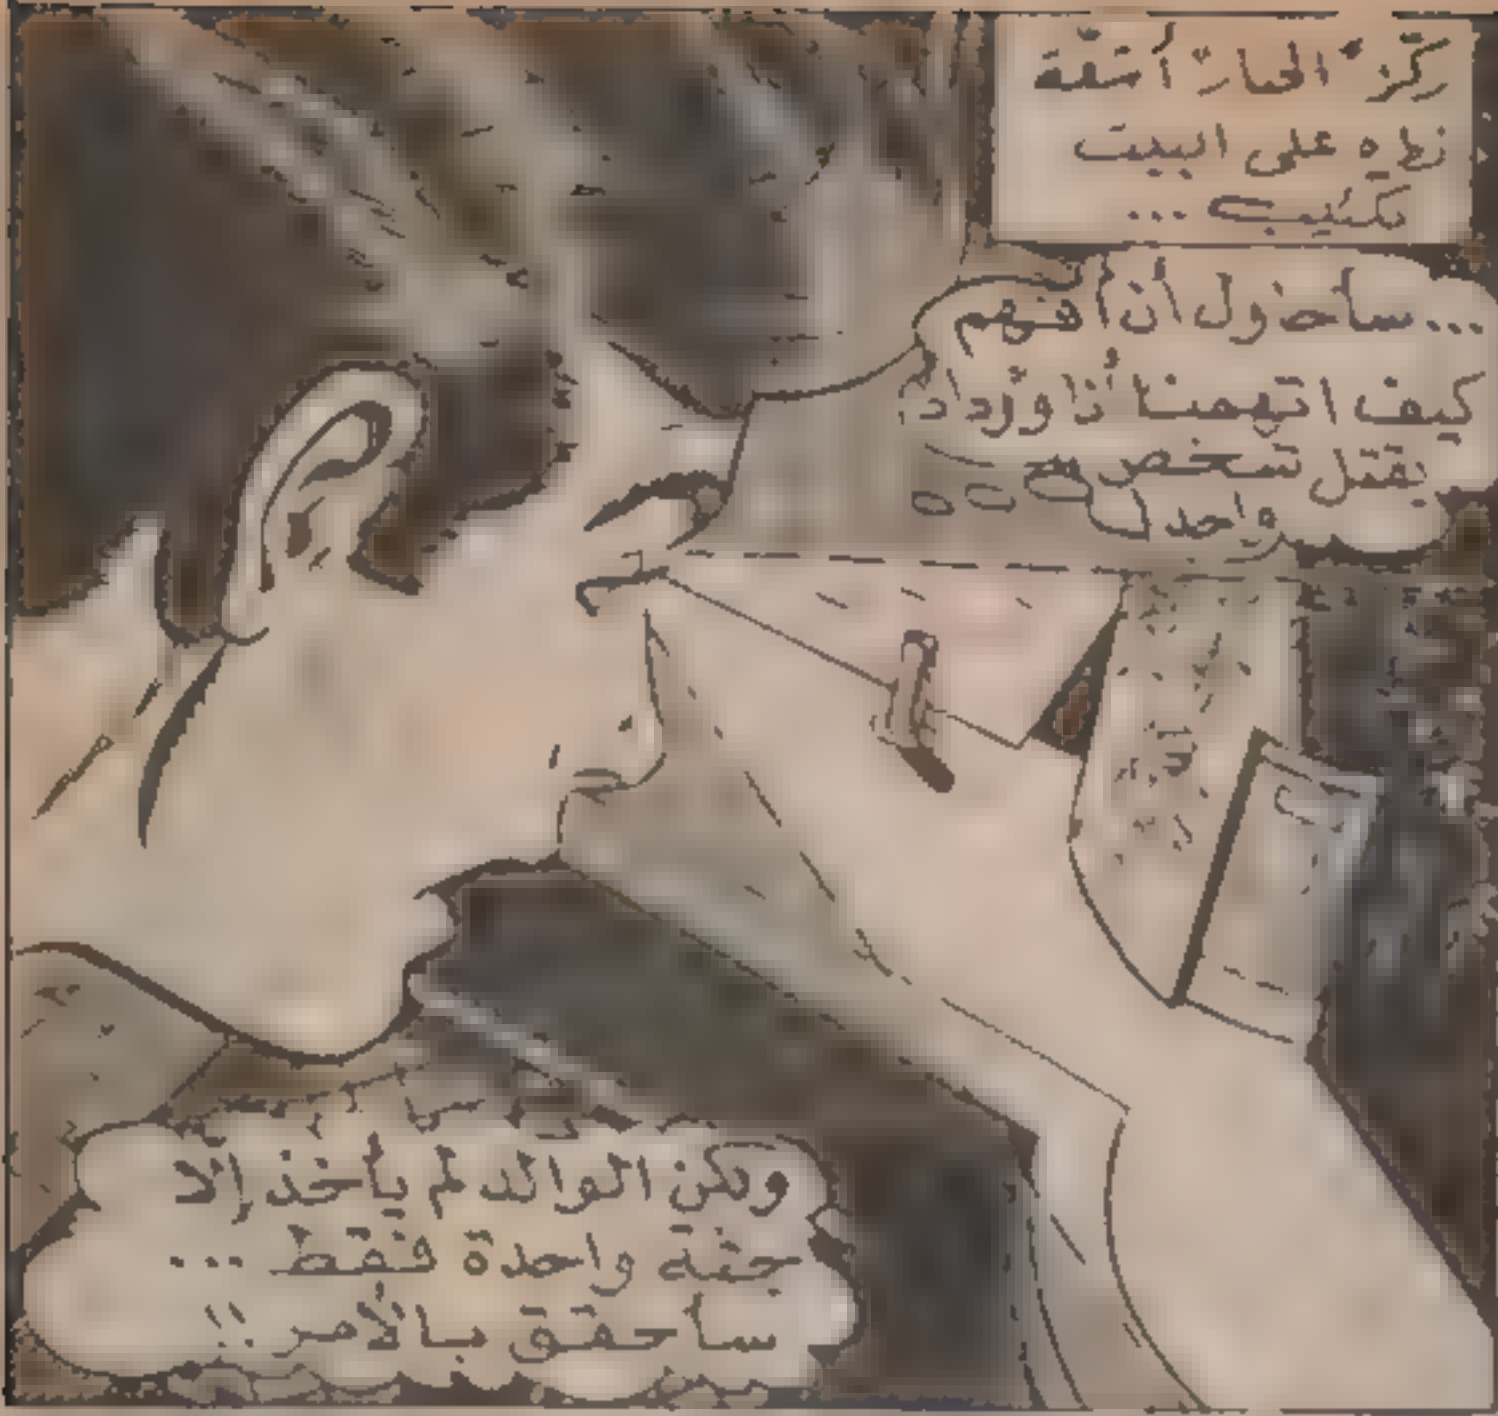 ركّز الجبار أشعة
نظره على البيت
... سأحاول أن أفهم
كيف اتهمنا
بقتل شخص
واحد
ولكن الوالد لم يأخذ إلا
حقنة واحدة فقط ...
سأحقق بالأمر !!